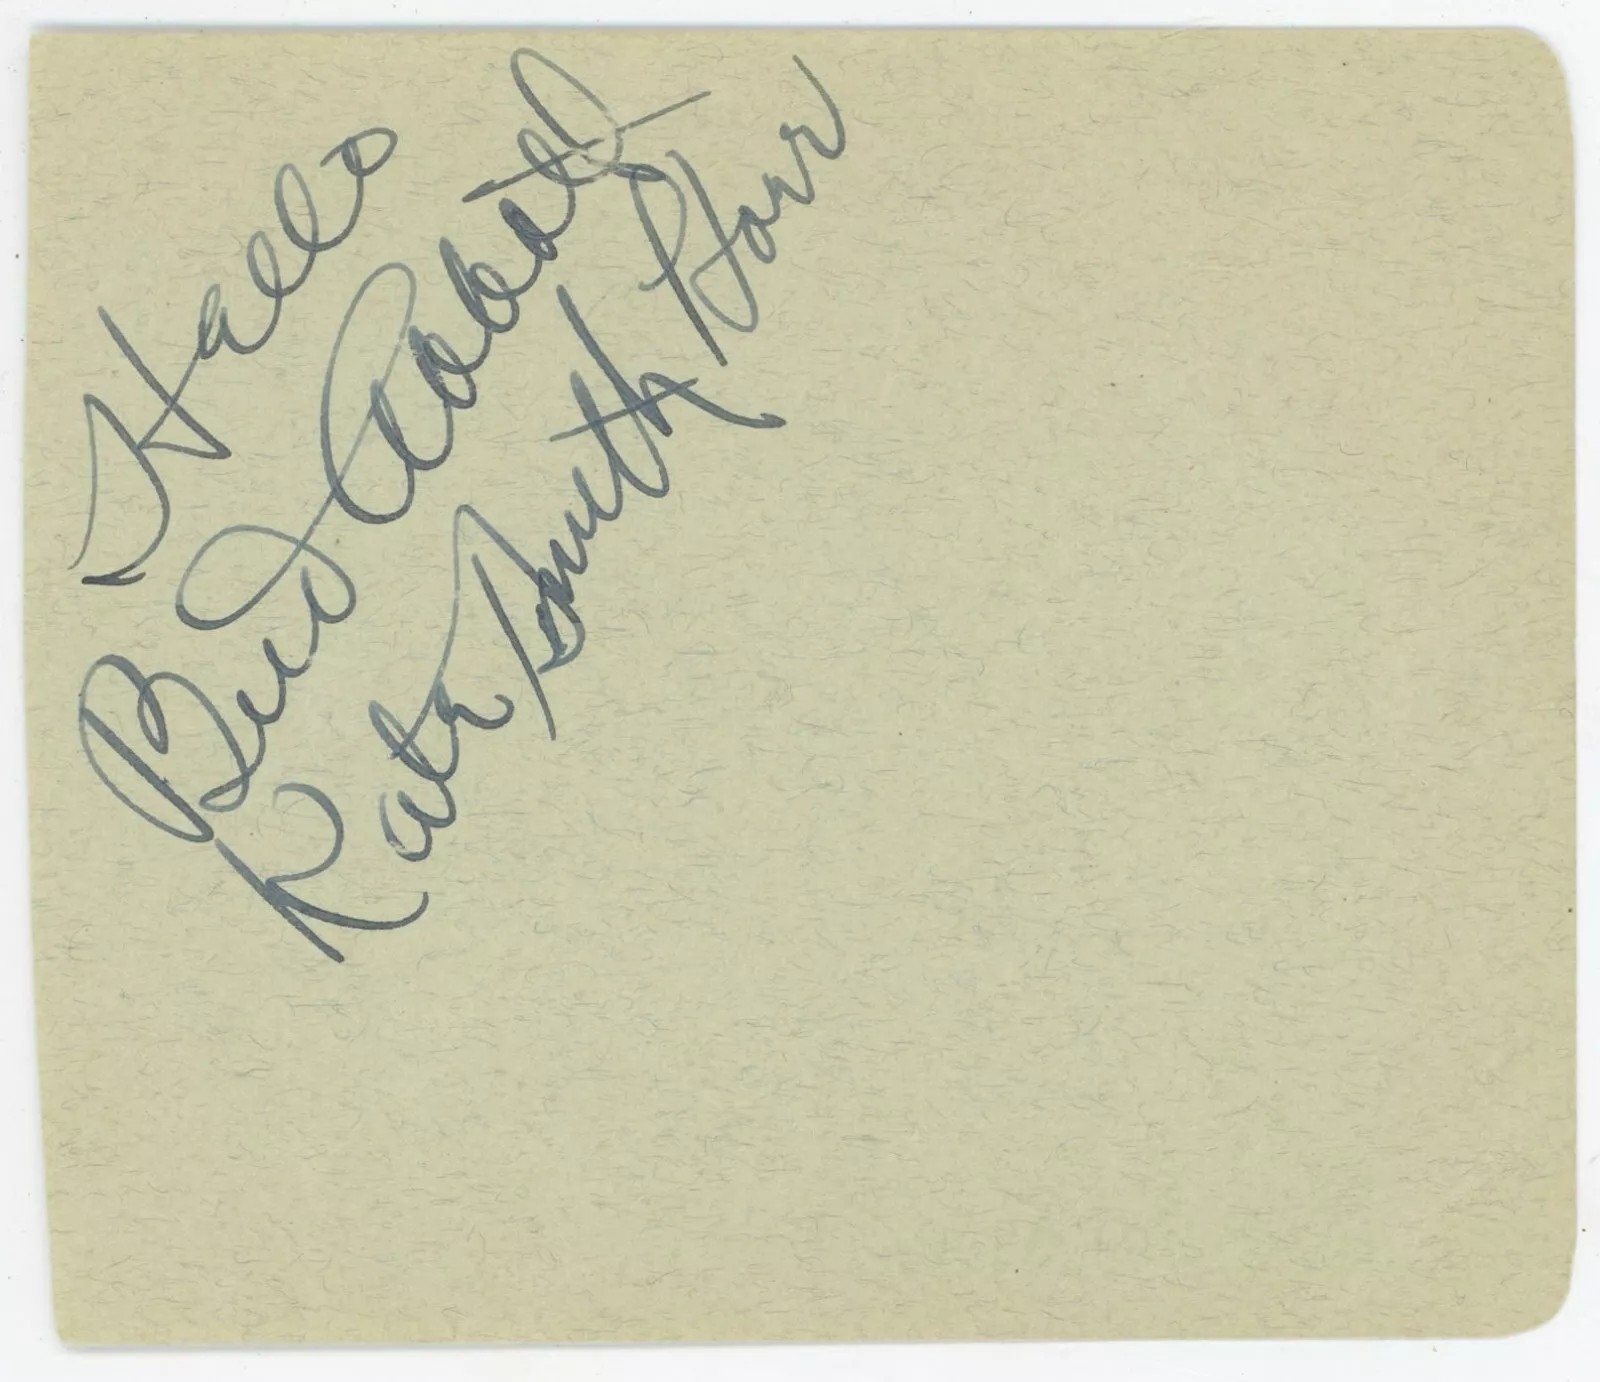 Hallo
Bud Abbott
Kate Smith Hour